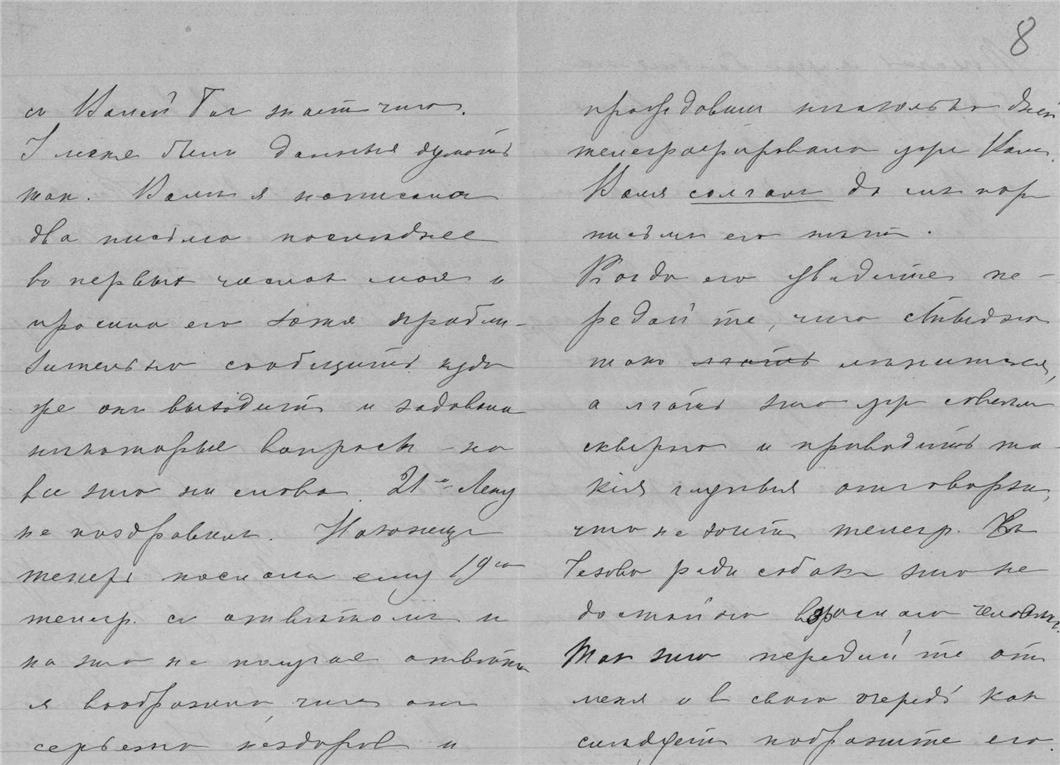 8
съ Колей Богъ знаетъ что.
У меня были данныя думать
такъ. Коли я написала
два письма последнее
въ первыхъ числахъ мая и
просила его хотя прибли-
зительно сообщить куда
же онъ выходитъ и задавала
некоторые вопросы – на
все это ни слова. 21-го Лелу
не поздравилъ. Наконецъ
теперь послала ему 19го
телегр. съ ответомъ и
на это не получая ответа
я вообразила что онъ
серьезно нездоровъ и
прождавши несколько дней
телеграфировала
Коля солгалъ
письма его нетъ.
Когда его увидите пе-
редайте, что стыдно
такъ лгать лениться,
а лгать это ужъ совсемъ
скверно и приводить та-
кія глупыя отговорки,
что не дошла телегр.
ради собакъ это не
достойно взрослаго человека.
Такъ это передайте отъ
меня и въ свою очередь какъ
следуетъ побраните его.